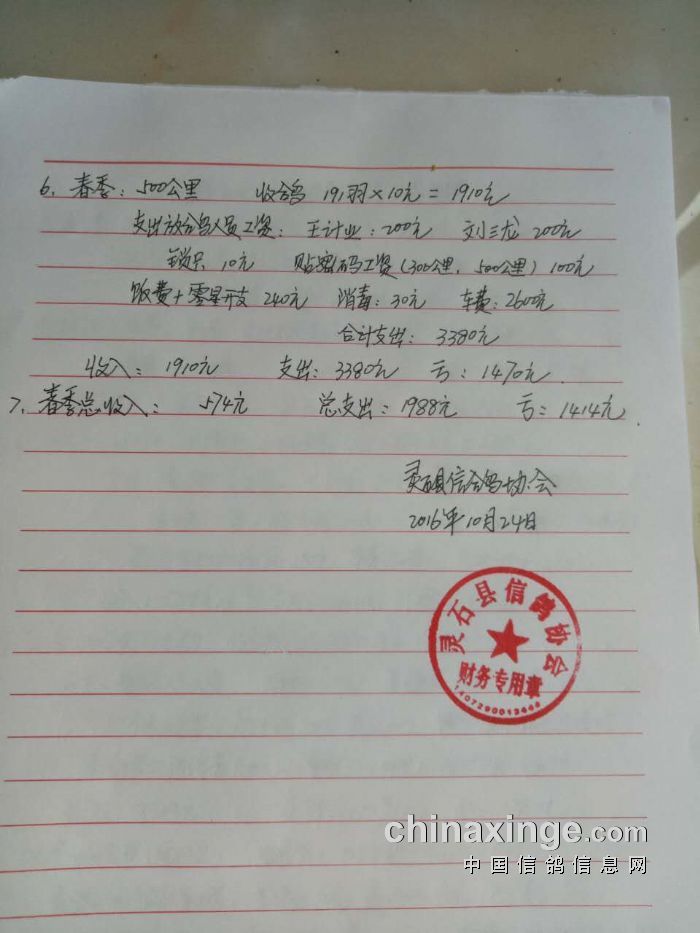 6. 春季: 500公里 收鸽 191羽×10元=1910元
支出放鸽人员工资: 王计业: 200元 刘三龙 200元
锁只 10元 贴密码工资(300公里, 500公里) 100元
饭费+零星开支 240元 消毒: 30元 车费: 2600元
合计支出: 3380元
收入: 1910元 支出: 3380元 亏: 1470元.
7. 春季总收入: 574元 总支出: 1988元 亏: 1414元.
灵石县信鸽协会
2016年10月24日
灵石县信鸽协会
财务专用章
chinaxinge.com
中国信鸽信息网